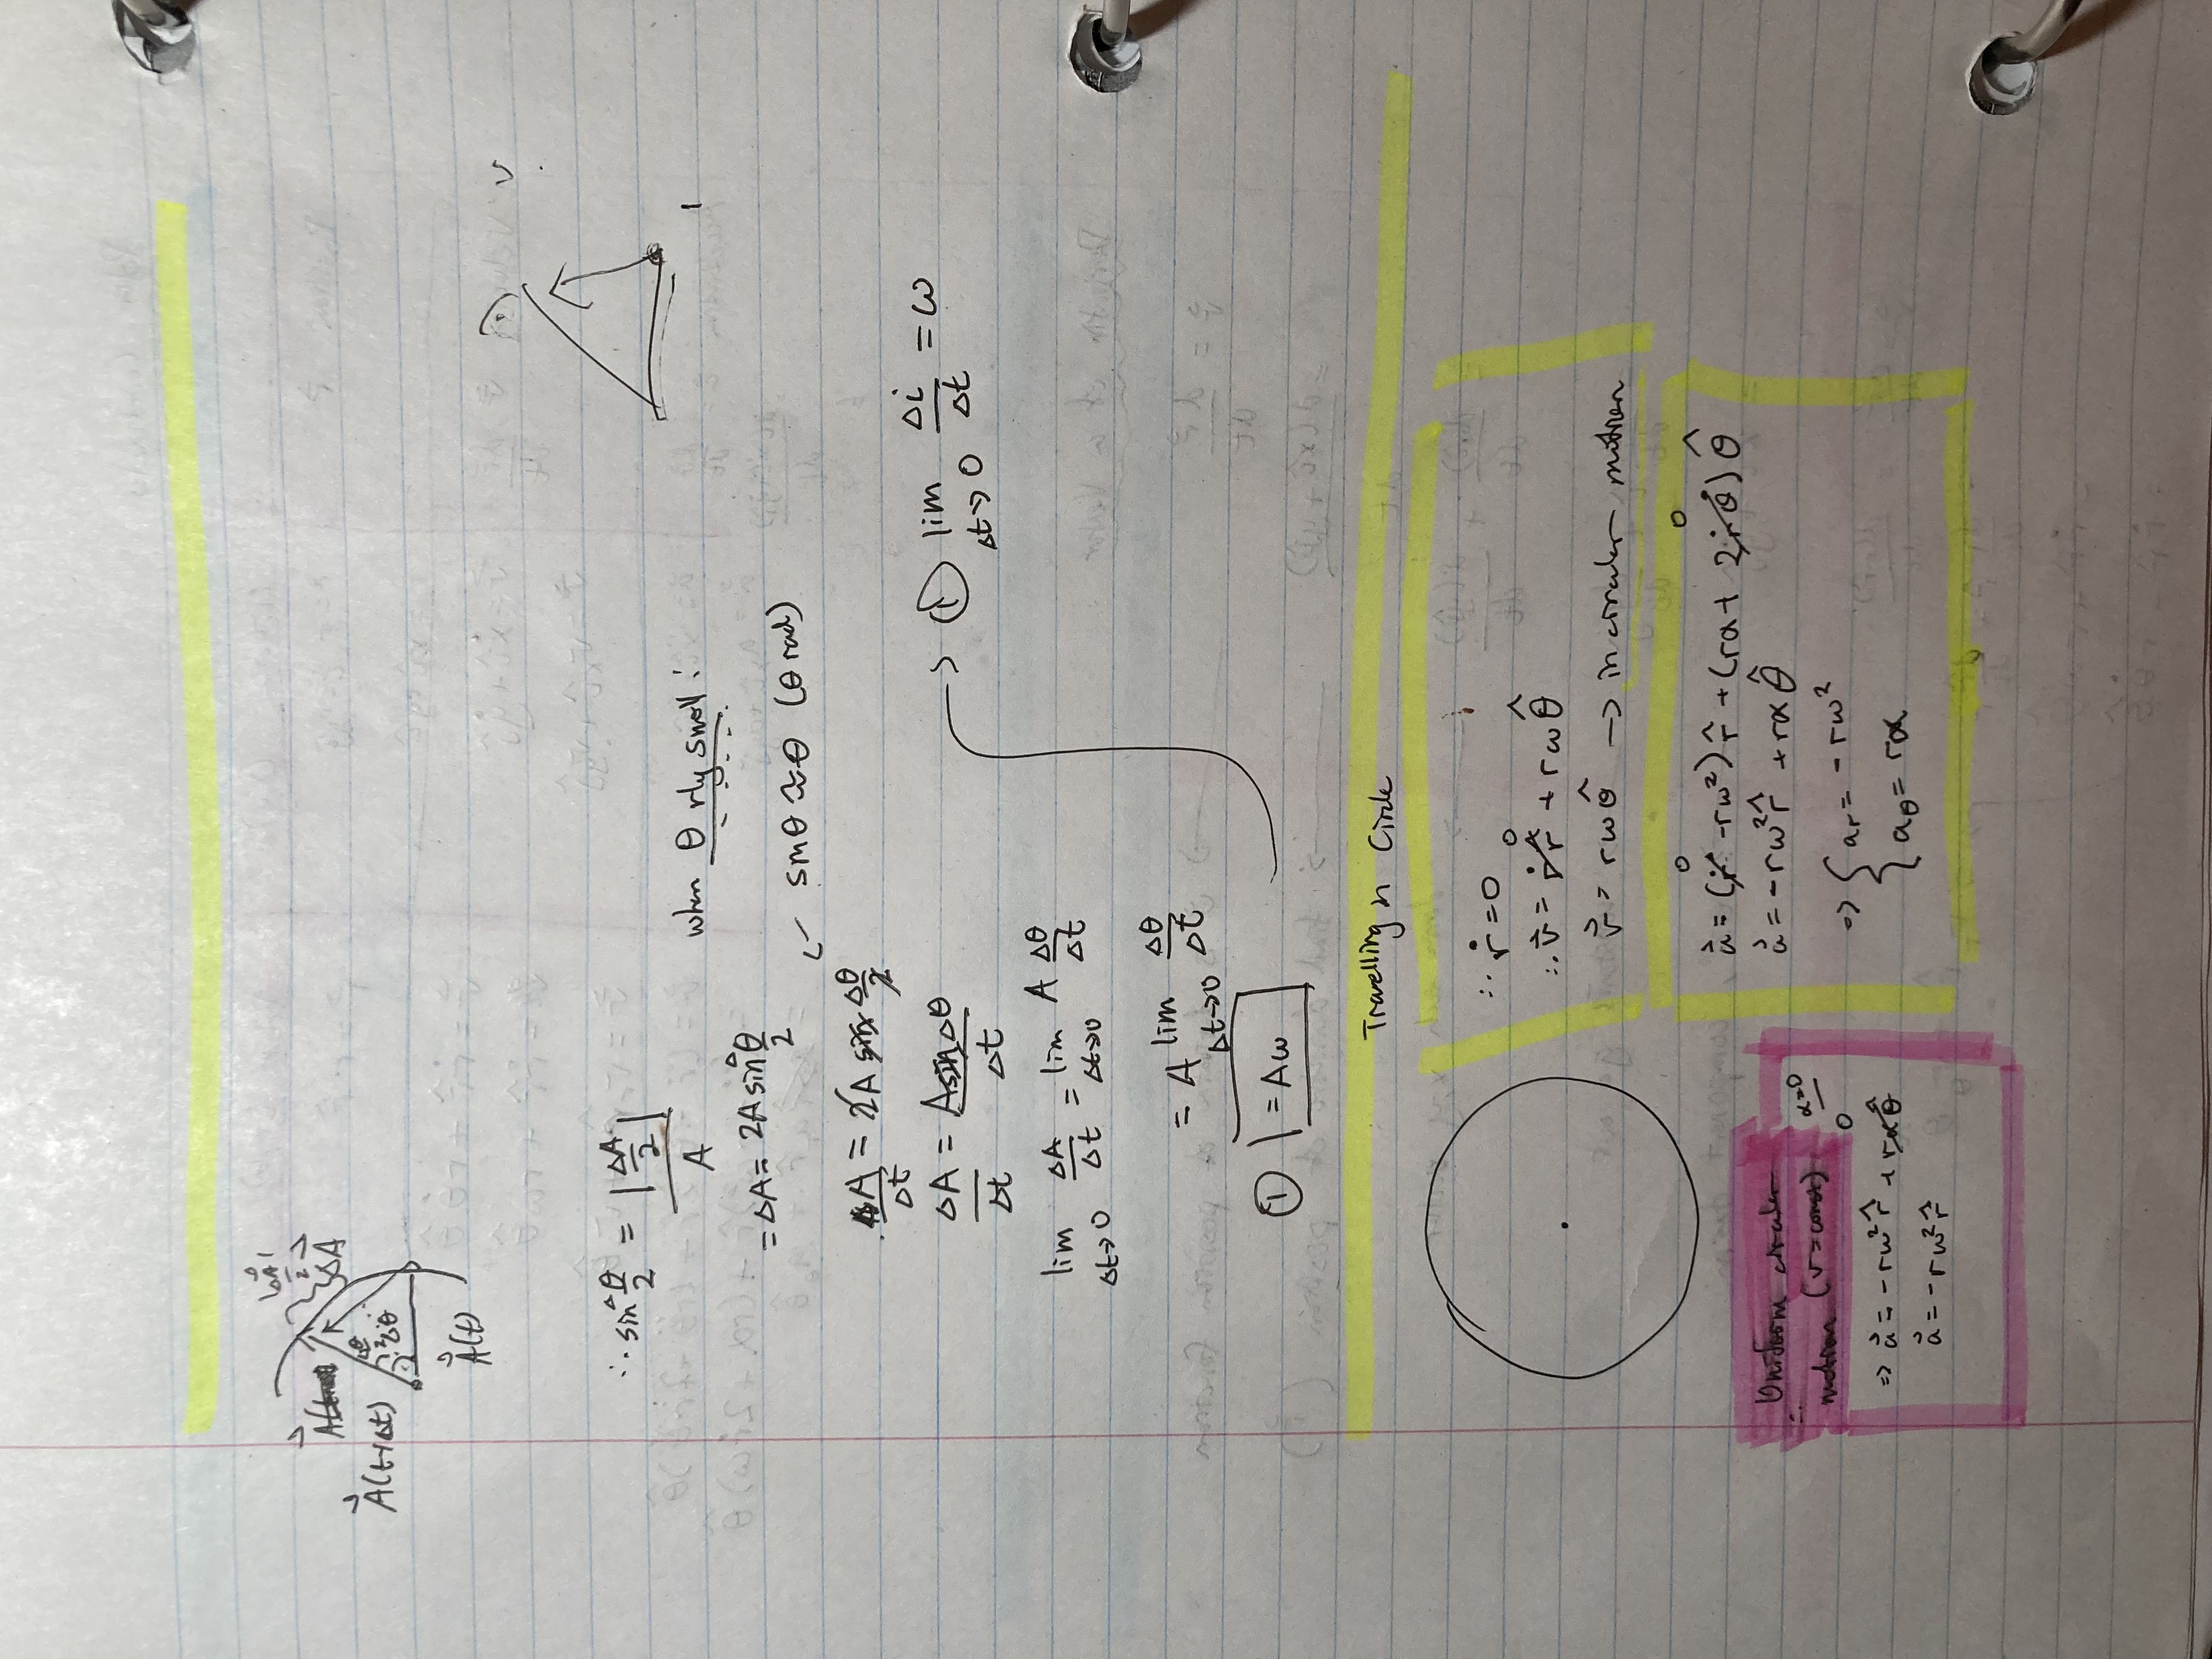 |ΔA⃗|
2
A⃗( ΔA⃗
Δθ
2
A⃗(t+Δt) Δθ
A⃗(t)
v
∴ sin Δθ/2 = |ΔA/2| / A
when θ rly small :
= ΔA = 2A sin Δθ/2
← sinθ ≈ θ (θ rad)
ΔA/Δt = 2A sin Δθ/2
ΔA/Δt = A sin Δθ / Δt
① lim Δt→0 Δi/Δt = ω
lim Δt→0 ΔA/Δt = lim Δt→0 A Δθ/Δt
= A lim Δt→0 Δθ/Δt
① = Aω
Travelling in Circle
∵ ṙ = 0
0
∴ v⃗ = ṙ r̂ + rω θ̂
v⃗ = rω θ̂ → in circular motion
0 0
a⃗ = (r̈ - rω²) r̂ + (rα + 2ṙθ̇) θ̂
a⃗ = -rω² r̂ + rα θ̂
⇒ { a_r = -rω²
a_θ = rα
∴ Uniform circular
motion (v = const) α=0
0
⇒ a⃗ = -rω² r̂ + rα θ̂
a⃗ = -rω² r̂